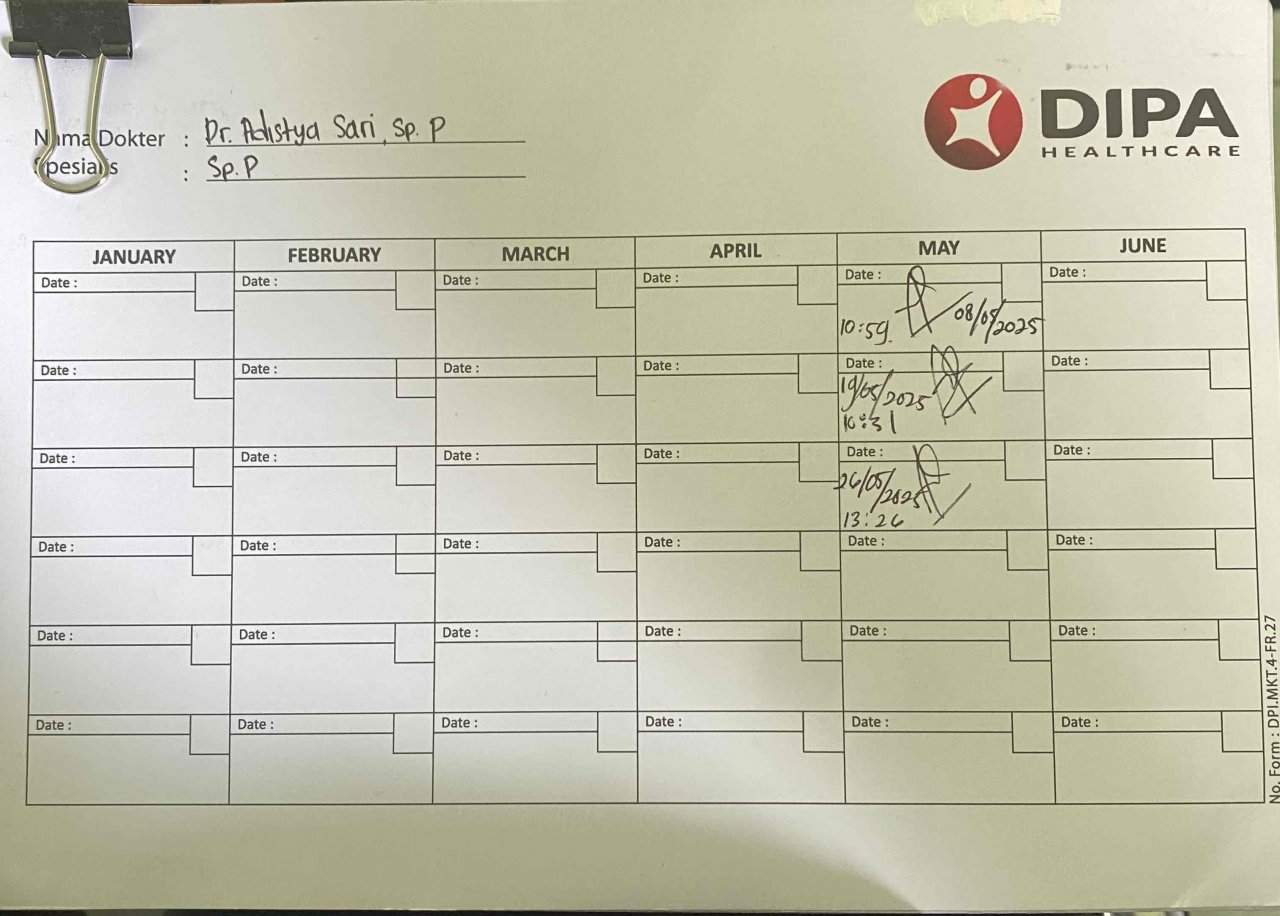 DIPA
HEALTHCARE
Nama Dokter : Dr. Adistya Sari, Sp. P
Spesialis : Sp.P
JANUARY FEBRUARY MARCH APRIL MAY JUNE
Date : Date : Date : Date : Date : Date :
10:59 08/05/2025
Date : Date : Date : Date : Date : Date :
19/05/2025
10:31
Date : Date : Date : Date : Date : Date :
26/05/2025
13:26
Date : Date : Date : Date : Date : Date :
Date : Date : Date : Date : Date : Date :
Date : Date : Date : Date : Date : Date :
No. Form : DPI.MKT.4-FR.27